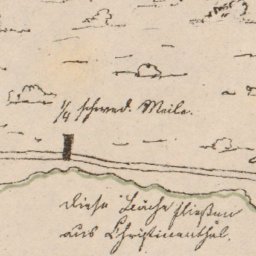 1/4 schwed. Meile.
diese Bäche fließen
aus Christinenthal.